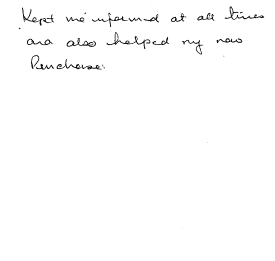 Kept me informed at all times
and also helped my new
Purchase.